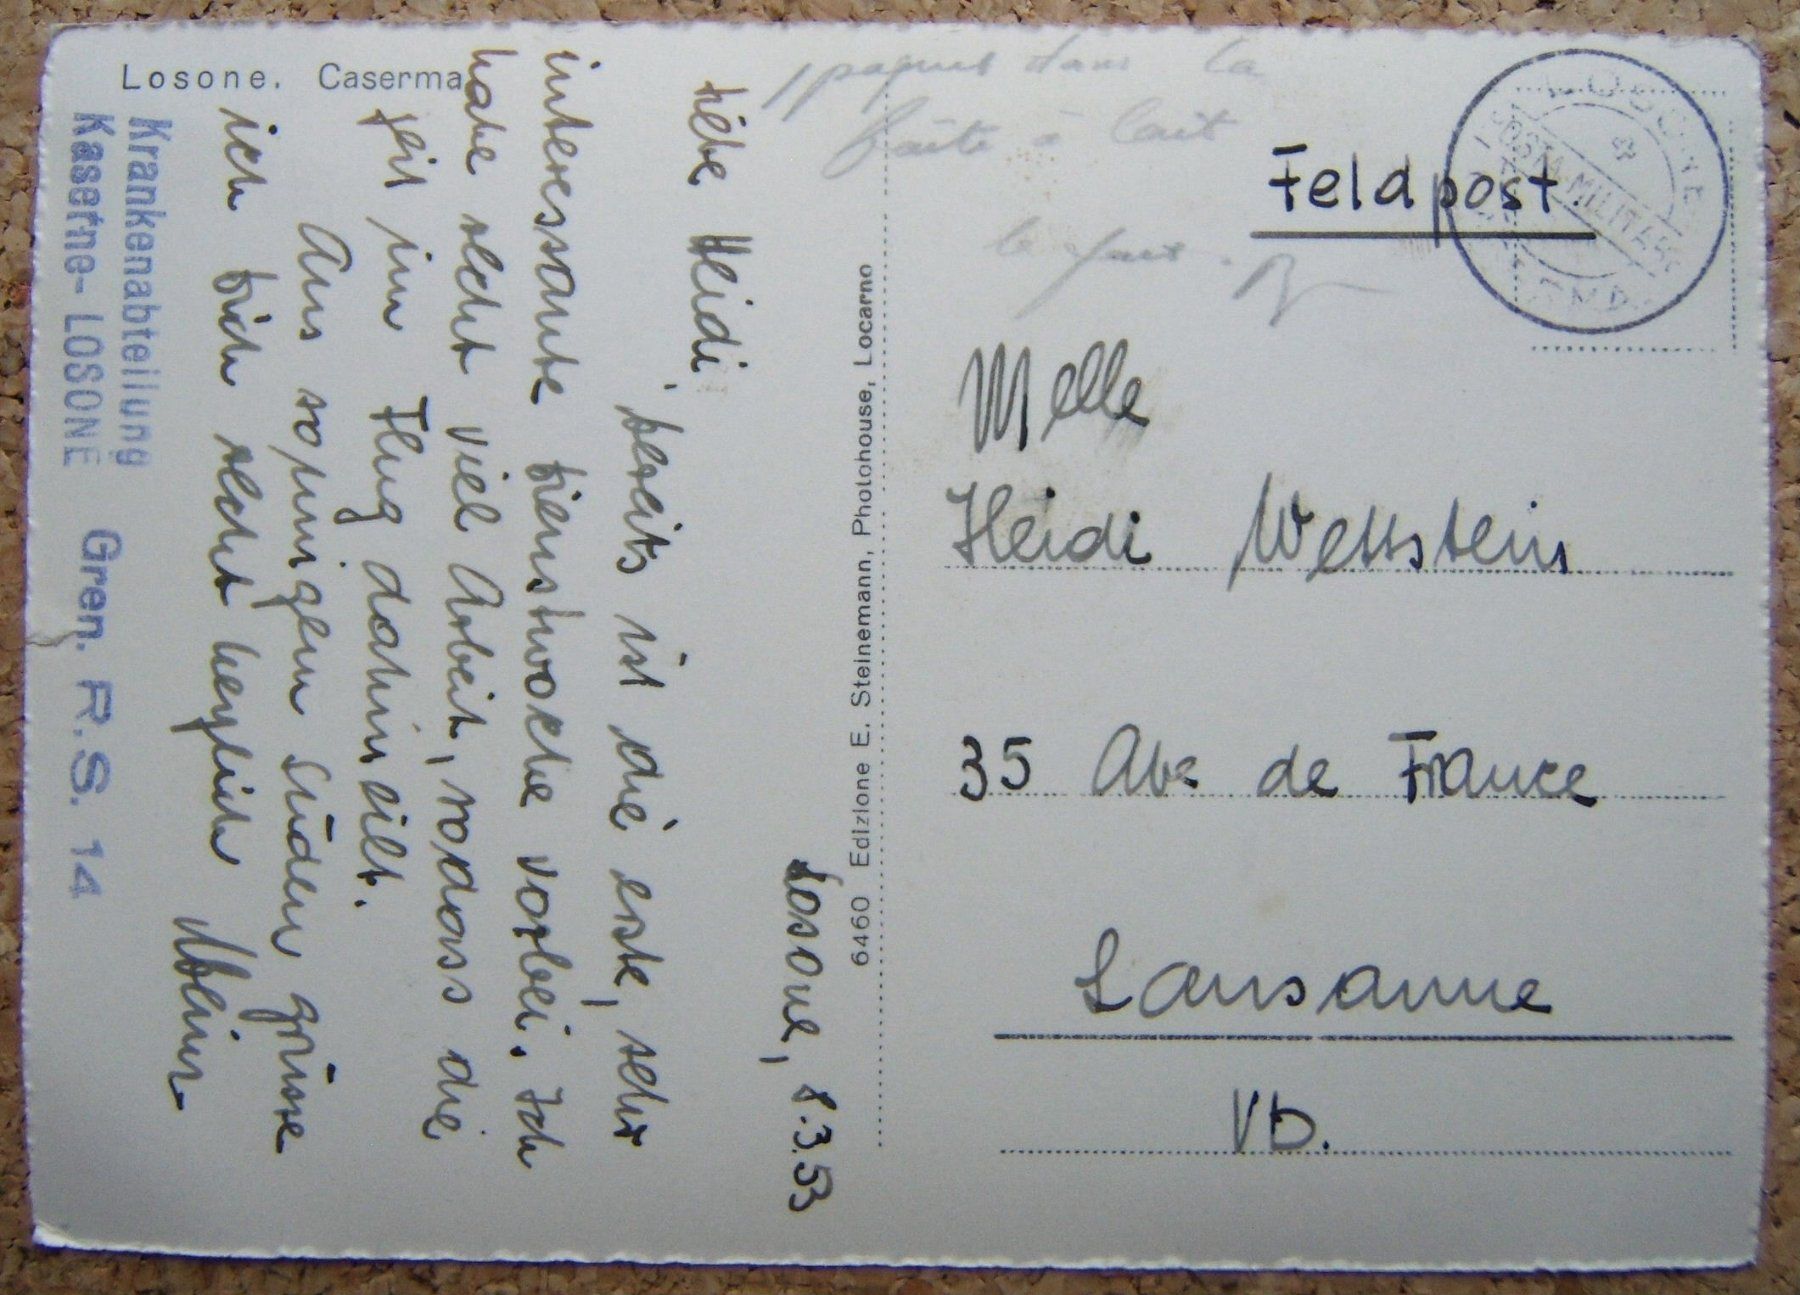 Losone. Caserma
Losone, 8.3.53
Liebe Heidi,
bereits ist die erste, sehr
interessante Dienstwoche vorbei. Ich
habe recht viel Arbeit, sodass die
Zeit im Flug dahin eilt.
Aus sonnigem Süden grüsse
ich Dich recht herzlich
Krankenabteilung
Kaserne-LOSONE Gren. R.S. 14
6460 Edizione E. Steinemann, Photohouse, Locarno
paquet dans la
boîte à lait
Feldpost.
LOSONE
POSTA MILITARE
Melle
Heidi Wettstein
35 Ave de France
Lausanne
VD.